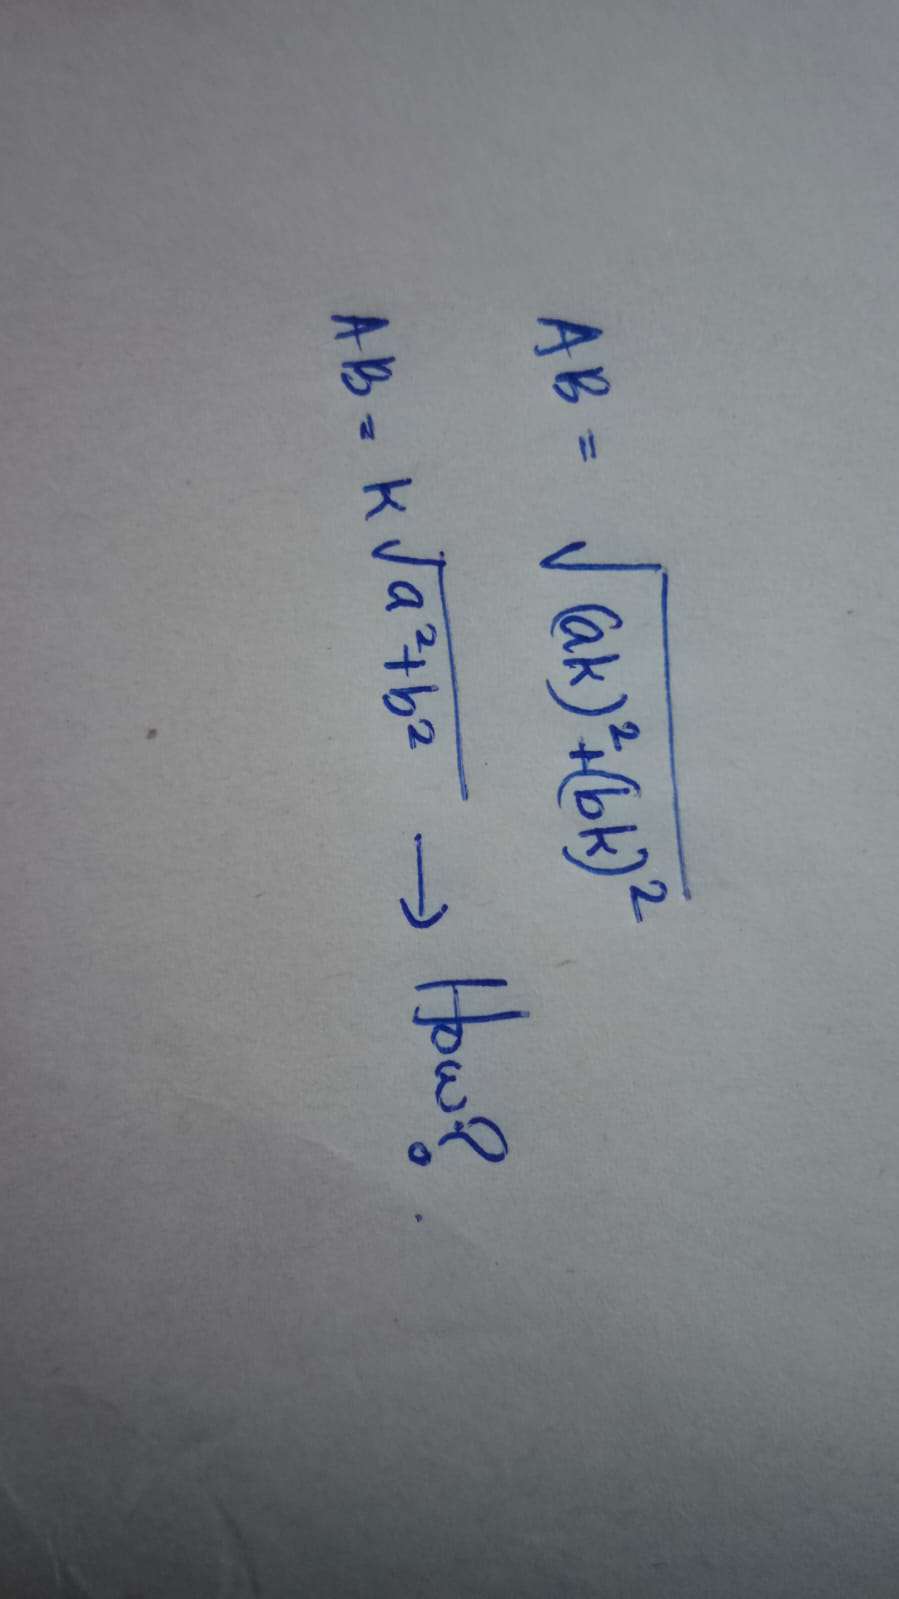 AB = √(ak)²+(bk)²
AB = k√a²+b² → How?